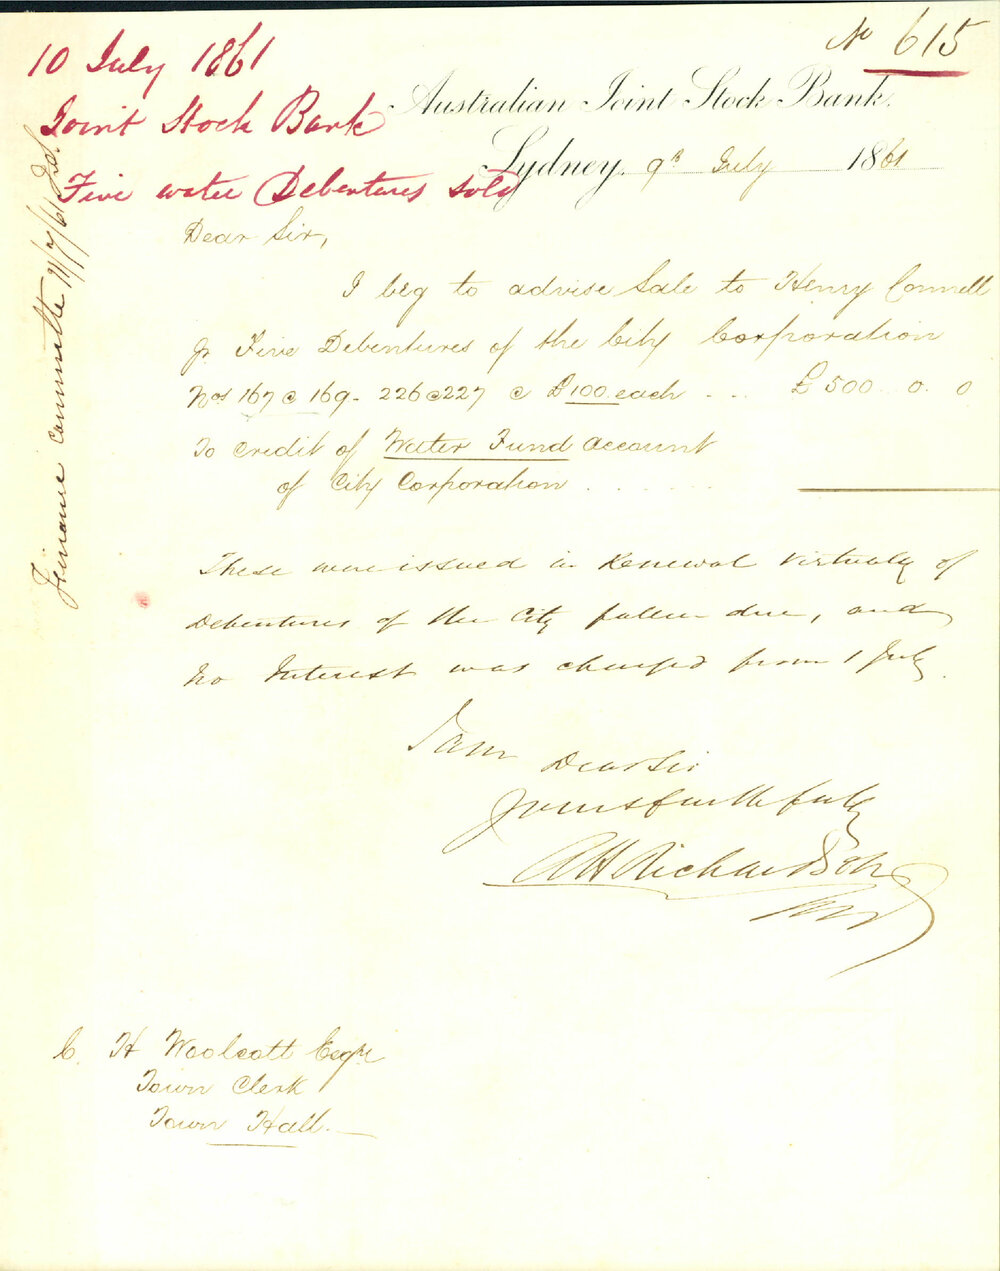 No 615
10 July 1861
Joint Stock Bank
Five water Debentures sold
Finance Committee 11/7/61
Australian Joint Stock Bank.
Sydney, 9th July 1861
Dear Sir,
I beg to advise Sale to Henry Connell
Jr Five Debentures of the City Corporation
Nos 167 @ 169 - 226 @ 227 @ £100 each ... £500. 0. 0
To credit of Water Fund account
of City Corporation .......
These were issued in Renewal virtually of
Debentures of the City fallen due, and
no Interest was charged from 1 July.
I am
Dear Sir
Yours faithfully
A H Richardson
C. H Woolcott Esqre
Town Clerk
Town Hall.